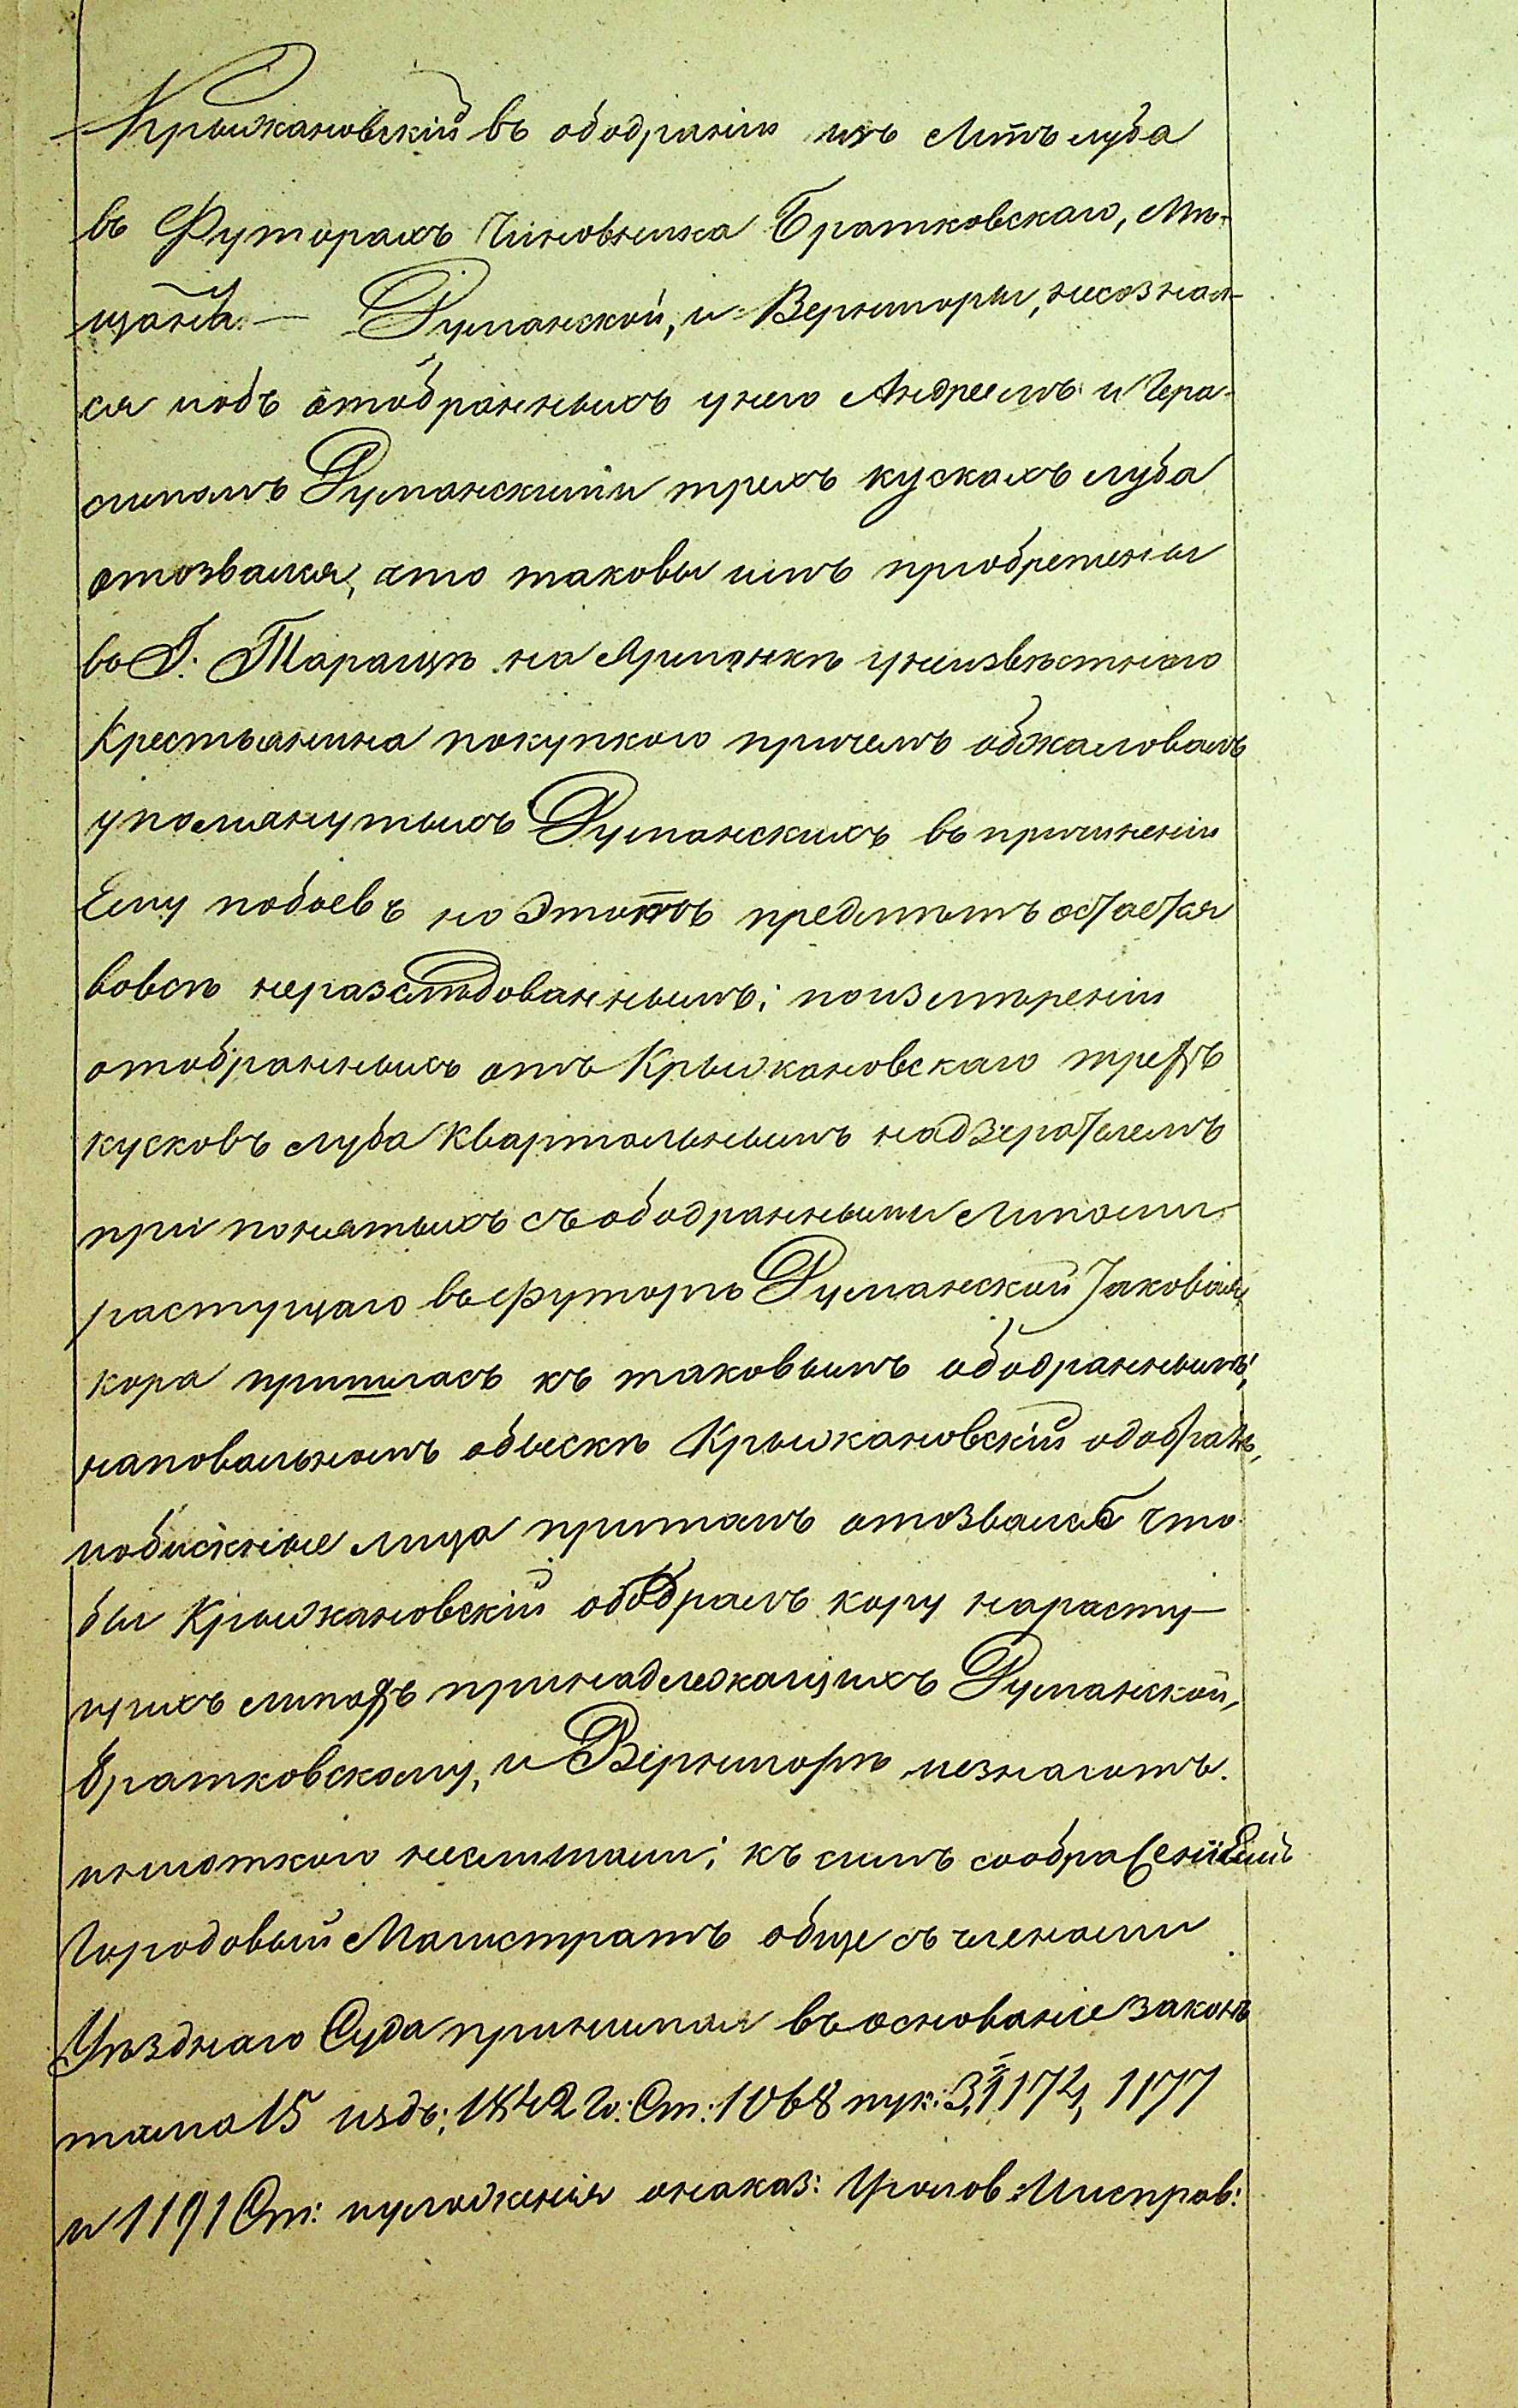 Крыжановскій въ ободраніи изъ Липъ луба
въ Футорахъ Чиновника Братковскаго, Мѣ-
щанки — Руманской, и Вернигоры, несознал-
ся и объ отобранныхъ у него Андреемъ и Гера-
симомъ Руманскими трехъ кускахъ луба
отозвался, что таковы имъ пріобретены
во Г. Таращѣ на Ярманкѣ у неизвѣстнаго
Крестьянина покупкою причемъ обжаловалъ
упомянутыхъ Руманскихъ въ причиненіи
Ему побоевъ но Этотъ предмѣтъ остается
вовсѣ неразслѣдованнымъ; по измѣреніи
отобранныхъ отъ Крыжановскаго трехъ
кусковъ луба Квартальнымъ надзерателемъ
при понятыхъ съ ободранными Липами
растущаго въ футорѣ Руманской таковая
кора пришлась къ таковымъ ободраннымъ;
на повальномъ обыскѣ Крыжановскій одобренъ,
и обискные лица притомъ отозвались что
бы Крыжановскій ободралъ кору на расту-
щихъ липахъ принадлежащихъ Руманской,
Братковскому, и Вернигорѣ незнаютъ.
и ни откого неслыхали; къ симъ соображеніямъ
Городовый Магистратъ обще съ членами
Уѣзднаго Суда принимая въ основаніе законъ
тома 15 изд: 1842 г: Ст: 1068 пун: 3, 1174, 1177
и 1191 Ст: и уложенія о наказ: Уголов. и исправ: